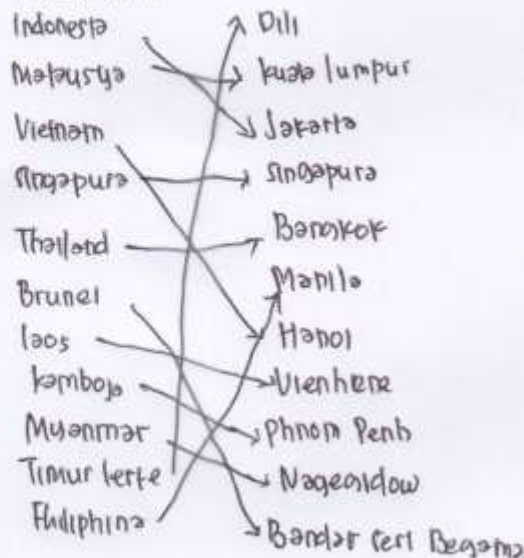 Indonesia
Malausya
Vietnam
Singapura
Thailand
Brunei
laos
kamboja
Myanmar
Timur lerte
Fhiliphina
Dili
kuala lumpur
Jakarta
singapura
Bangkok
Manila
Hanoi
Vienhene
Phnom Penh
Nageaidow
Bandar seri Begama